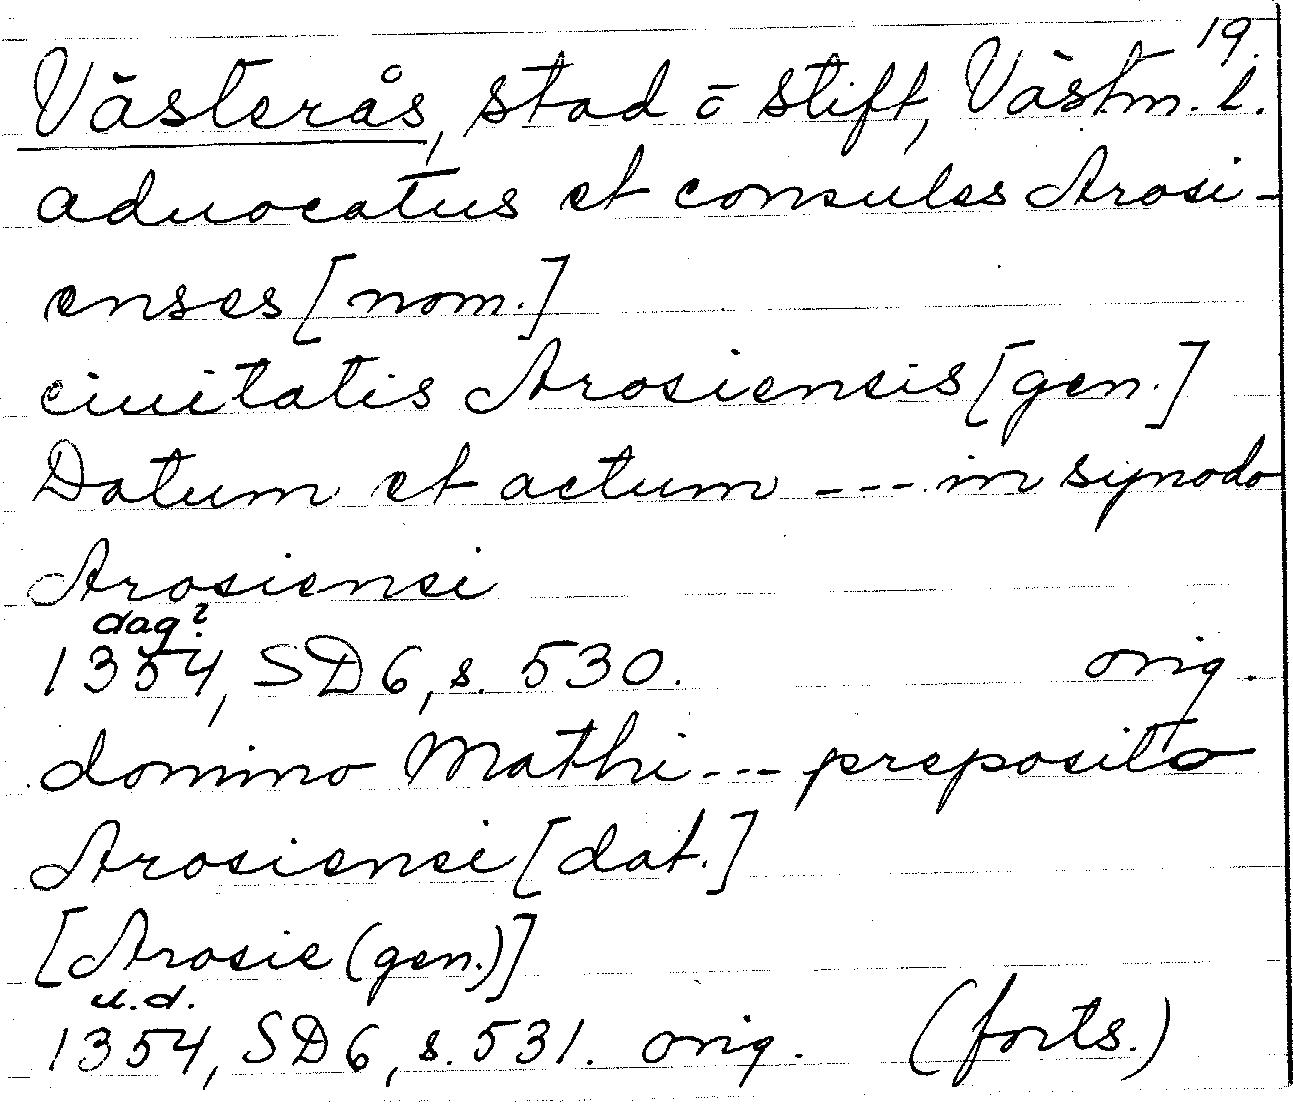 19.
Västerås, stad ō stift, Västm. l.
aduocatus et consules Arosi-
enses [nom.]
ciuitatis Arosiensis [gen.]
Datum et actum --- in synodo
Arosiensi
dag?
1354, SD6, s. 530. orig.
domino Mathi --- preposito
Arosiensi [dat.]
[Arosie (gen.)]
u.d.
1354, SD6, s. 531. orig. (forts.)